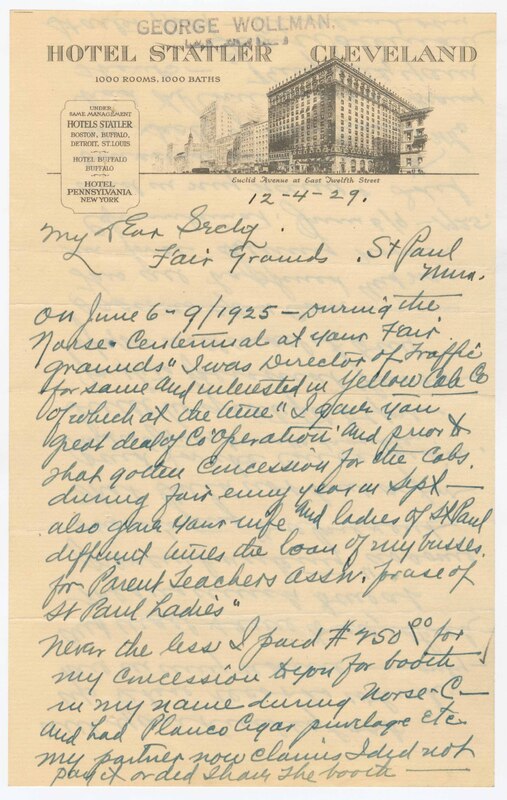 GEORGE WOLLMAN.
HOTEL STATLER CLEVELAND
1000 ROOMS. 1000 BATHS
UNDER
SAME MANAGEMENT
HOTELS STATLER
BOSTON, BUFFALO,
DETROIT, ST. LOUIS
HOTEL BUFFALO
BUFFALO
HOTEL
PENNSYLVANIA
NEW YORK
Euclid Avenue at East Twelfth Street
12-4-29.
My Dear Secty.
Fair Grounds. St Paul
Minn.
On June 6-9/1925 - During the
Norse. Centennial at your Fair
grounds" I was Director of Traffic
for same and interested in Yellow Cab Co
of which at the time" I gave you
great deal of Co Operation and prior to
that gotten concession for the cabs.
during fair every year in Sept -
also gave your wife and ladies of St Paul
different times the loan of my busses.
for Parent Teachers Assn. for use of
St Paul Ladies"
Never the less I paid # 250 00 for
my concession to you for booth
in my name during Norse-C-
and had Cigar privilage etc
my partner now claims I did not
pay it or did I have the booth -